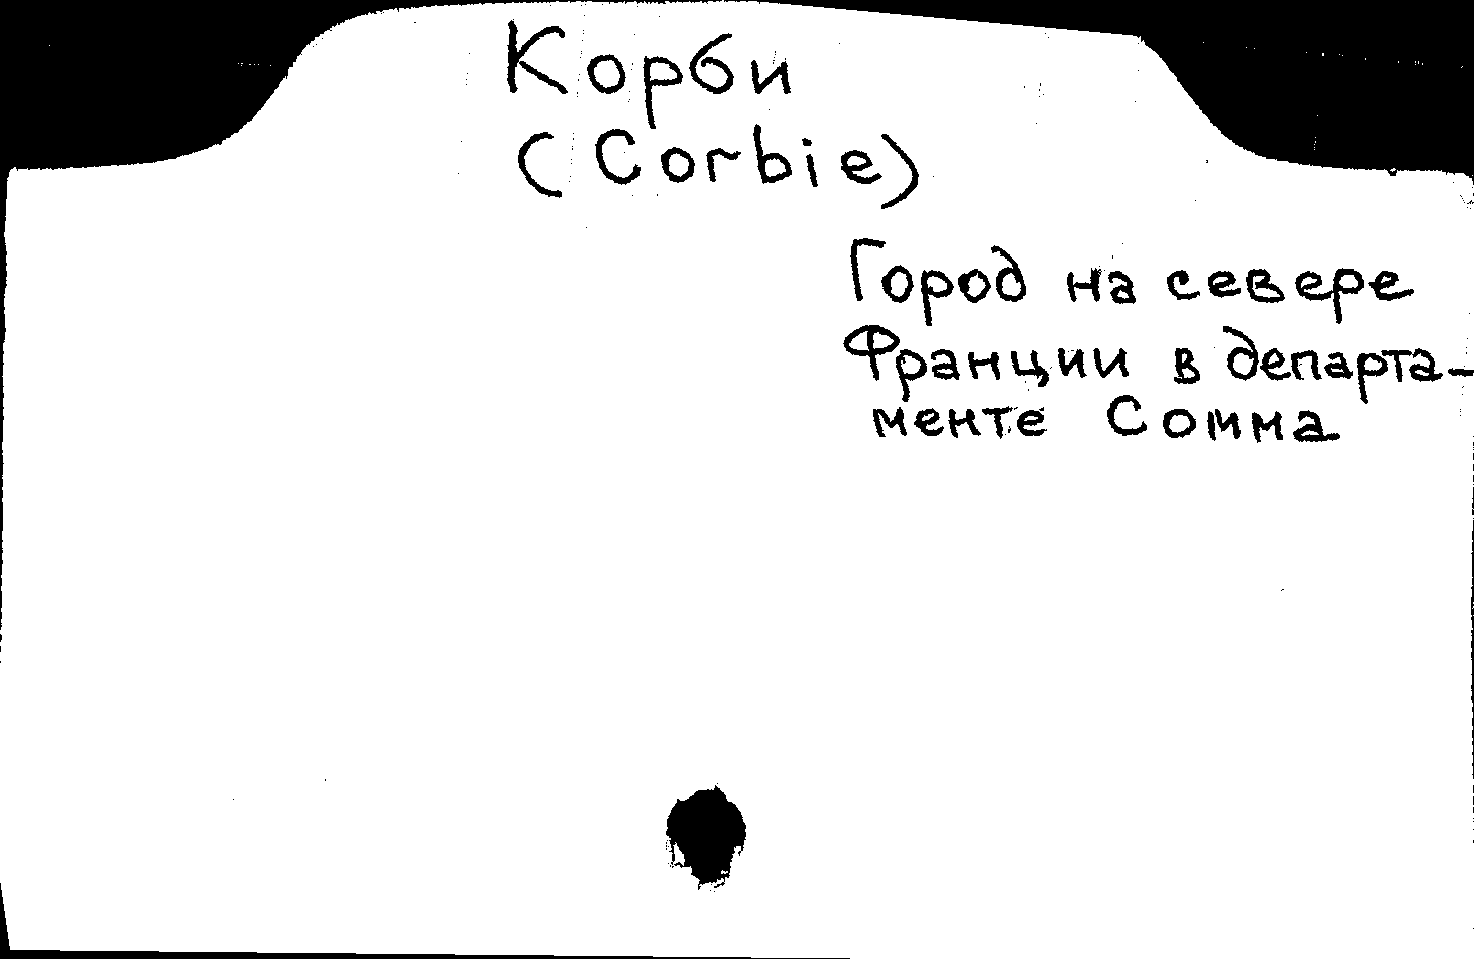 Корби
(Corbie)
Город на севере
Франции в департа-
менте Сомма